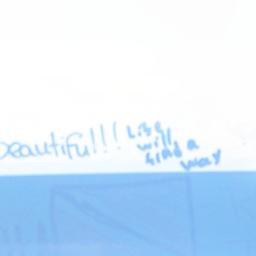 beautiful!!!
Life
will
find a
way